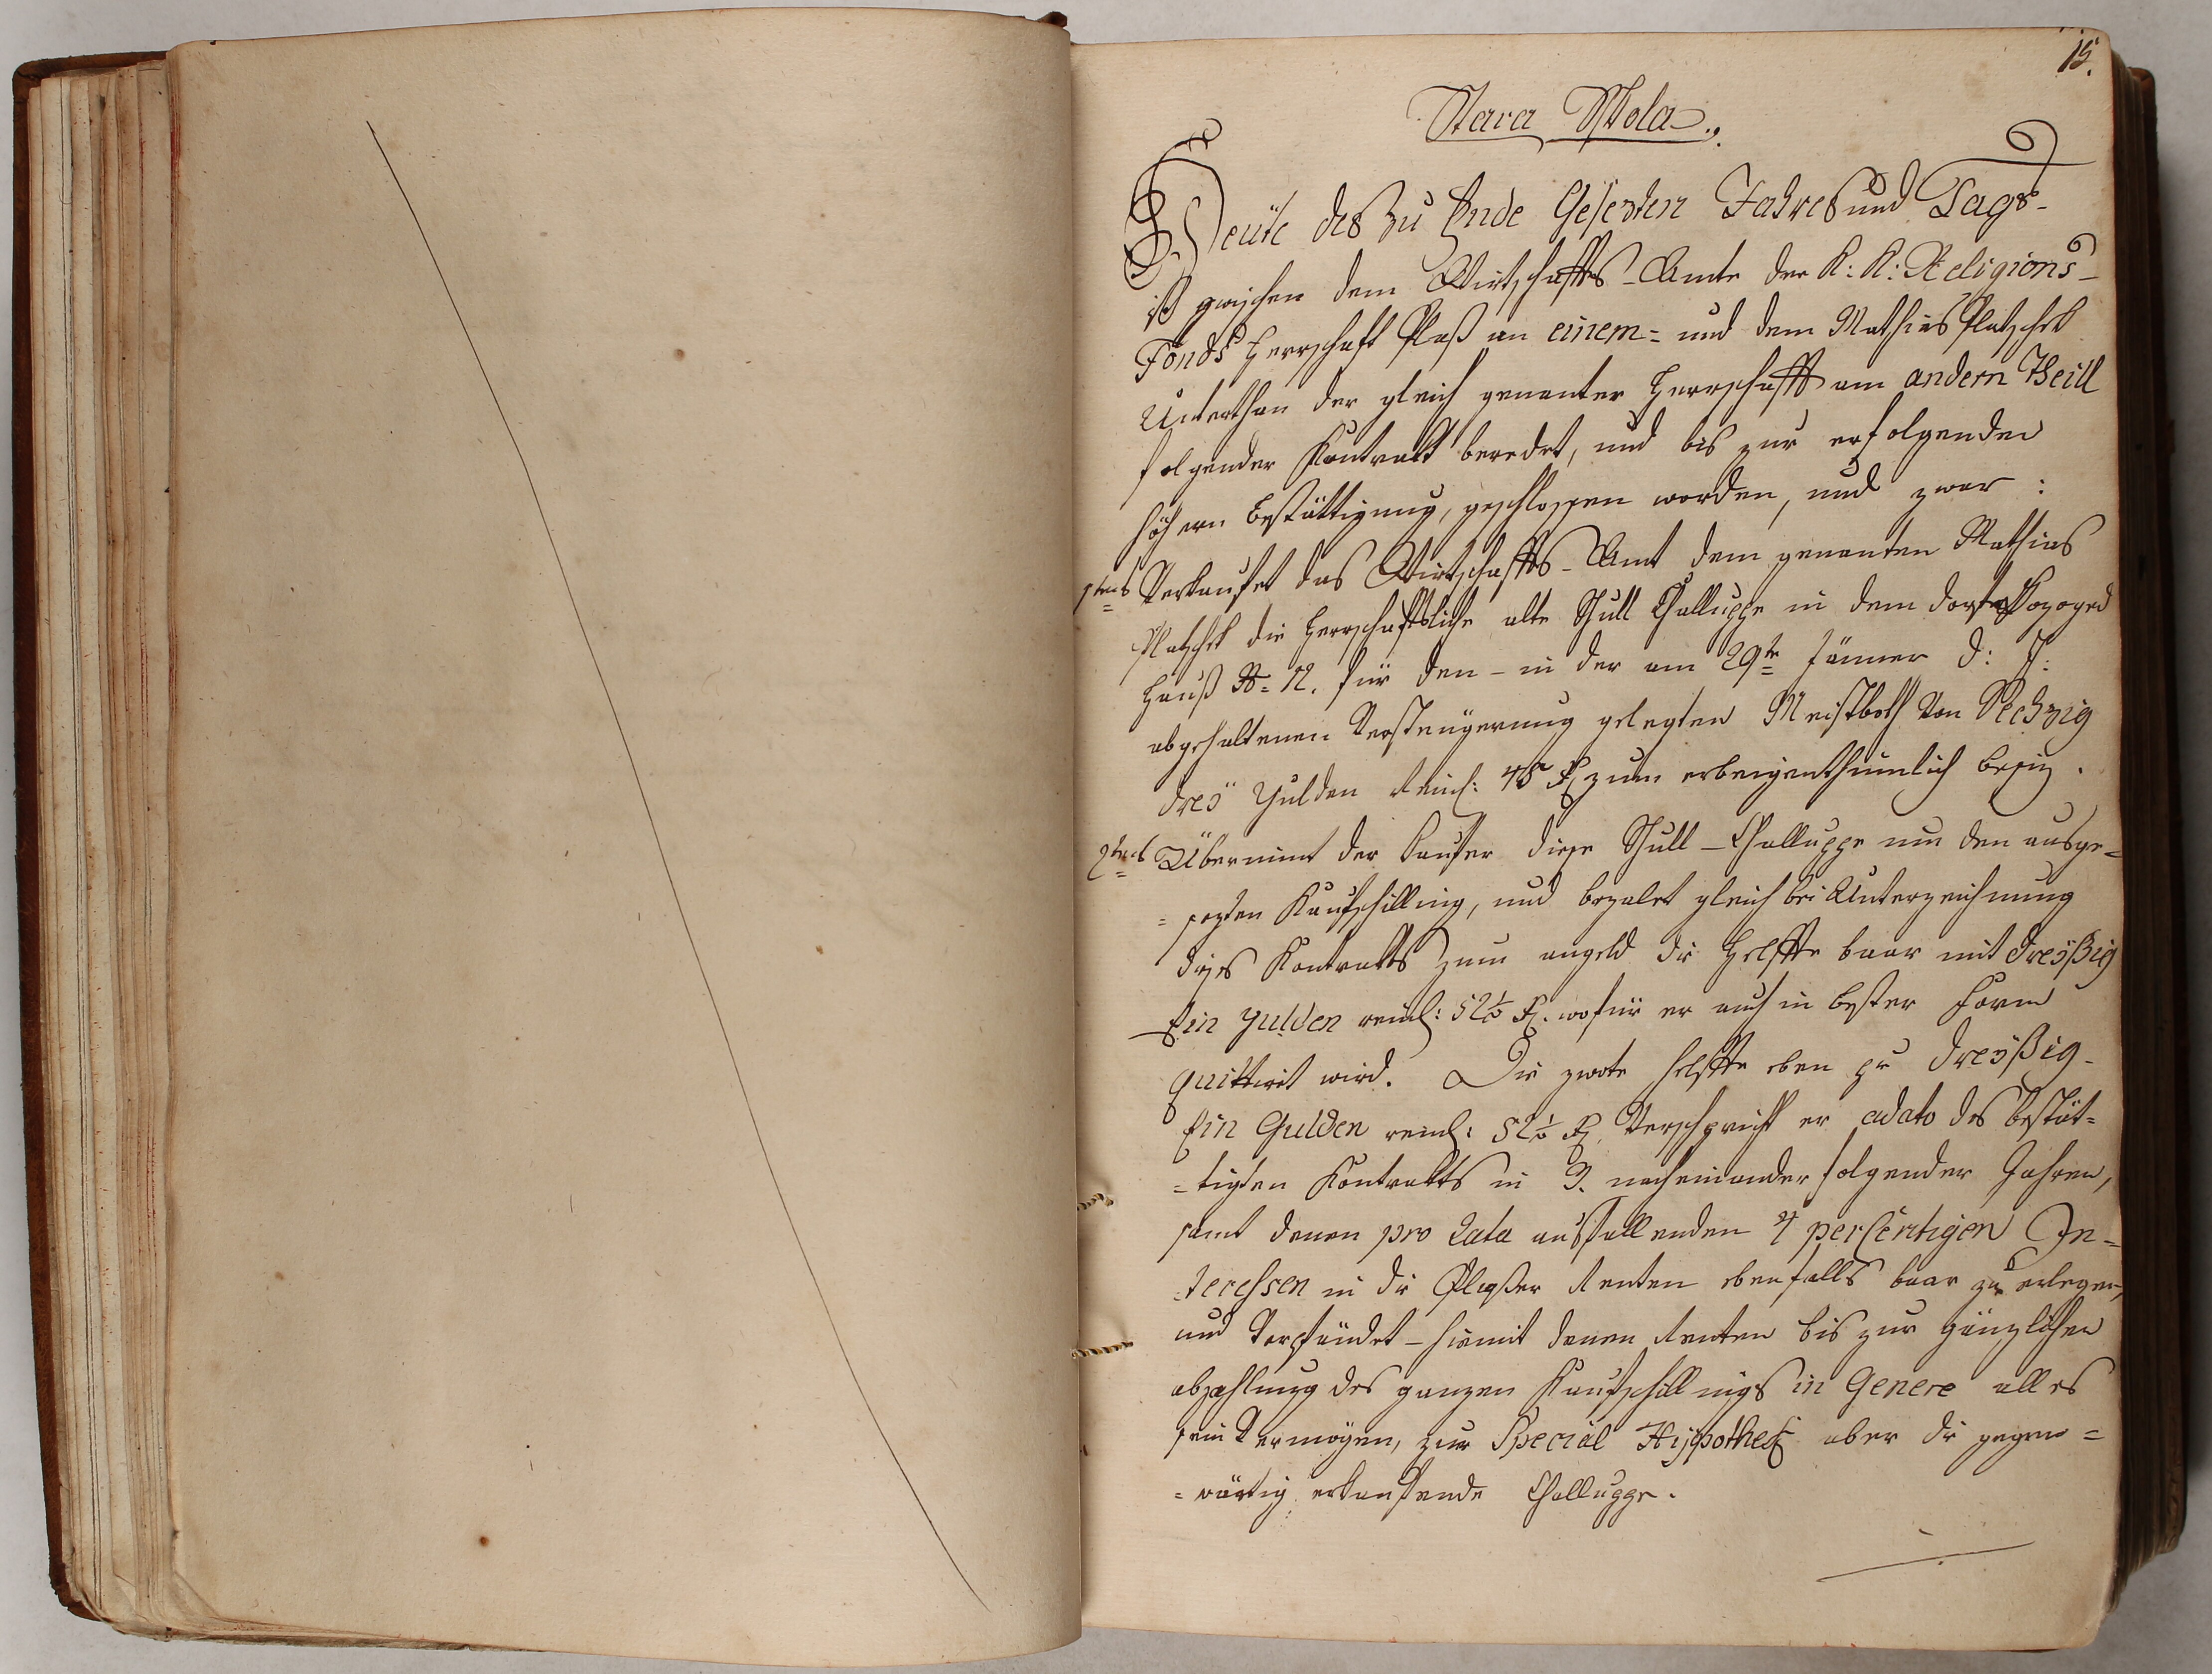 15.
Stara Skola.
Heute des zu Ende Gesezten Jahres und Tags-
ist zwischen dem Wirtschafts-Amte der K: K: Religions-
Fonds Herrschaft Plaß an einem= und dem Mathias Platschek
Unterthan der gleich genanter Herrschafft am andern Theill
folgender Kontrakt beredet, und bis zur erfolgenden
höhern Bestättigung, geschlossen worden, und zwar:
1tens Verkaufet das Wirtschafts-Amt dem genanten Mathias
Platschek die Herrschaftliche alte Schull Challuppe in dem Dorfe
Hauß N= 12. für den - in der am 29te Jänner d: J:
abgehaltenen Versteügerung gelegten Meistboth von Sechzig
dreÿ Gulden Reinl: 45 Xr zum erbeigenthümlich besiz.
2tens Übernimt der Kaufer diese Schull-Challuppe um den ausge=
=sezten Kaufschilling, und bezalet gleich bei Unterzeichnung
dises Kontrakts zum angeld die Helffte baar mit Dreÿßig
Ein Gulden reinl: 52½ Xr. wofür er auch in bester Form
quittirt wird. Die zwote Helffte eben pr Dreÿßig-
Ein Gulden reinl: 52½ Xr, Verspricht er adato des bestät=
=tigten Kontrakts in 3. nacheinander folgender Jahren,
samt denen pro Rata ausfallenden 4 percentigen In=
=teressen in die Plaßer Renten ebenfalls baar zu erlegen,
und Verpfändet - hiemit denen Renten bis zur gänzlichen
abzahlung des ganzen Kaufschillings in Genere alles
sein Vermögen, zur Special Hÿpothek aber die gegen=
=wärtig erkaufende Challuppe.